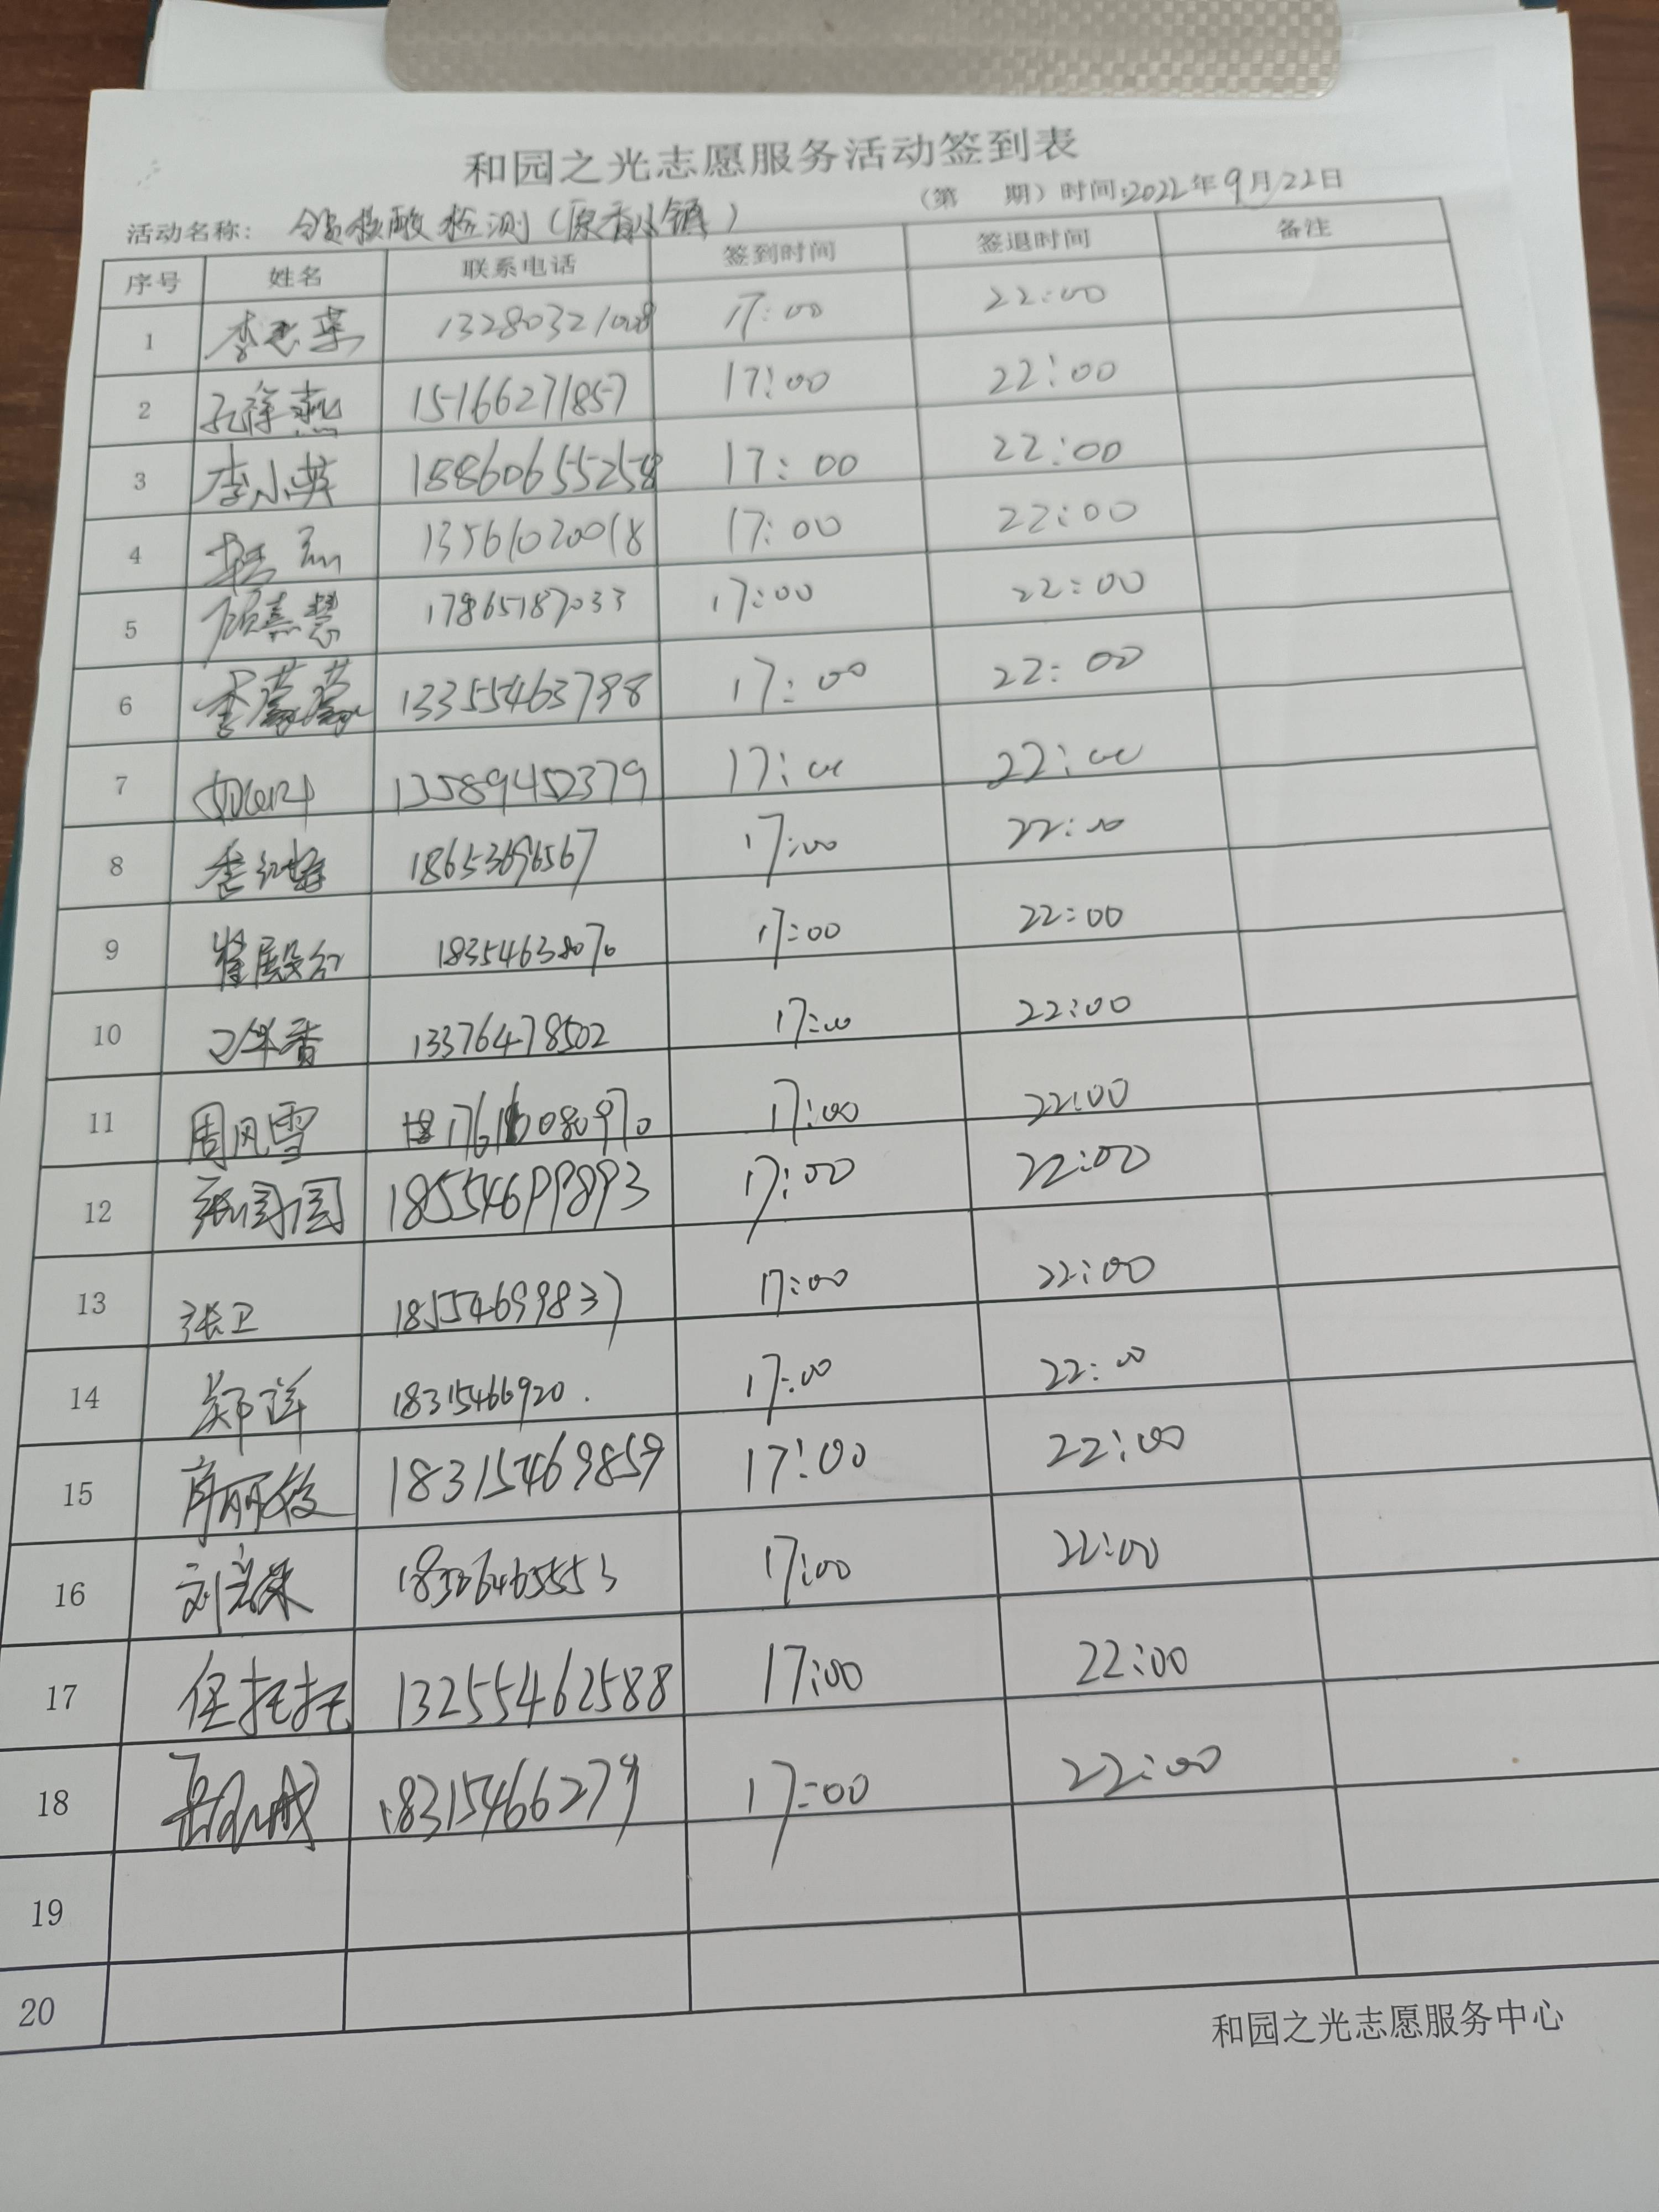 和园之光志愿服务活动签到表
(第 期) 时间:2022年9月22日
活动名称: 核酸检测(原香小镇)
序号 姓名 联系电话 签到时间 签退时间 备注
1 17:00 22:00
2 15166271857 17:00 22:00
3 李小英 18860655258 17:00 22:00
4 13561020018 17:00 22:00
5 17865187033 17:00 22:00
6 李蒙蒙 13355463798 17:00 22:00
7 13589452379 17:00 22:00
8 18653696567 17:00 22:00
9 18354638070 17:00 22:00
10 13376478502 17:00 22:00
11 周风雪 17:00 22:00
12 张园园 18554699893 17:00 22:00
13 张卫 18554699837 17:00 22:00
14 郑洋 18315466920 17:00 22:00
15 18315469859 17:00 22:00
16 17:00 22:00
17 任托托 13255462588 17:00 22:00
18 18315466279 17:00 22:00
19
20
和园之光志愿服务中心